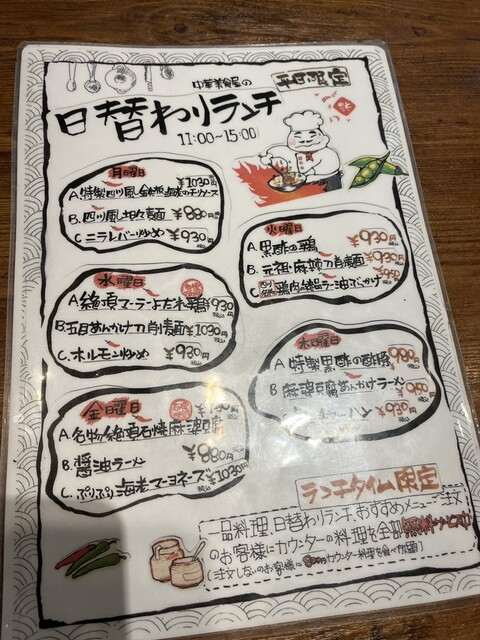 中華美食屋の
平日限定
日替わりランチ
11:00~15:00
月曜日
A. 特製四川風 海老のチリソース ¥1030
B. 四川風担々麺 ¥880
C. ニラレバー炒め ¥930
火曜日
A. 黒酢の鶏 ¥930
B. 元祖麻辣刀削麺 ¥930
C. ラー油でがけ
水曜日
A. 絶頂マーラーよだれ鶏 ¥930
B. 五目あんかけ刀削麺 ¥1030
C. ホルモン炒め ¥930
木曜日
A. 特製黒酢の酢豚 ¥980
B. 麻婆豆腐あんかけラーメン
¥930
金曜日
A. 名物絶頂石焼麻婆豆腐
B. 醤油ラーメン ¥880
C. ぷりぷり海老マヨネーズ ¥1030
ランチタイム限定
一品料理、日替わりランチ、おすすめメニュー注文
のお客様にカウンターの料理を全部無料サービス
(注文しないのお客様に カウンター料理を食べ放題)